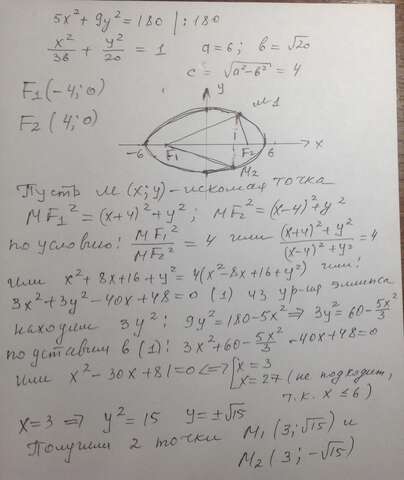 5x² + 9y² = 180 | : 180
x²/36 + y²/20 = 1   a = 6; b = √20
c = √(a²-b²) = 4
F1(-4; 0)
F2 (4; 0)
y
M1
-6 F1 F2 6 x
M2
Пусть M(x; y) - искомая точка
MF1² = (x+4)² + y²; MF2² = (x-4)² + y²
по условию: MF1²/MF2² = 4 или ((x+4)² + y²)/((x-4)² + y²) = 4
или x² + 8x + 16 + y² = 4(x² - 8x + 16 + y²) или:
3x² + 3y² - 40x + 48 = 0 (1) из ур-ия эллипса
находим 3y²: 9y² = 180 - 5x² => 3y² = 60 - 5x²/3
подставим в (1): 3x² + 60 - 5x²/3 - 40x + 48 = 0
или x² - 30x + 81 = 0 <=> [x = 3
x = 27 (не подходит,
т.к. x ≤ 6)
x = 3 => y² = 15   y = ±√15
Получили 2 точки M1 (3; √15) и
M2 (3; -√15)